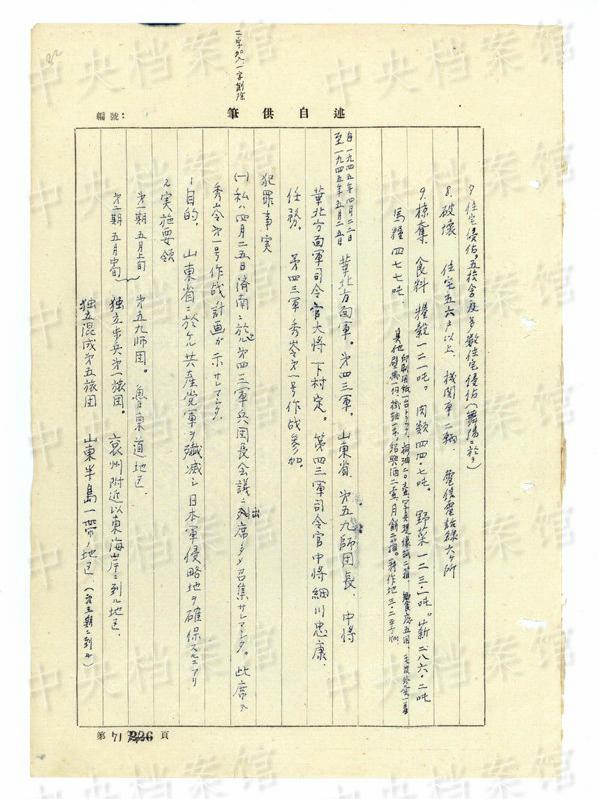 二字加入、一字削除
筆供自述
編號:
7. 住宅侵佔。五校舎及多数住宅侵佔(舞陽ニ於テ)
8. 破壊 住宅五六戸以上、機関車二輌、電信電話線六ケ所
9. 掠奪 食料 糧穀一二一吨。肉類四四.七吨。野菜一二三.一吨。薪二八六.二吨
馬糧四七七吨。
自一九四五年四月二二日
至一九四五年五月二五日
華北方面軍。第四三軍。山東省。第五九師団長、中将
華北方面軍司令官大将下村定。第四三軍司令官中将細川忠康、
任務。第四三軍秀嶺第一号作战参加。
犯罪事実
(一) 私ハ四月二五日済南ニ於ル第四三軍兵団長会議ニ出席ヲ召集サレマシタ。此席ニ
秀嶺第一号作战計画ガ示サレマシタ。
1 目的。山東省ニ於ケル共産党軍ヲ殲滅シ日本軍侵略地ヲ確保スルニアリ
2. 実施要領
第一期 五月上旬 第五九師団。魯東道地区、
第二期 五月中旬 独立歩兵第一旅団。袞州附近以東海岸ニ到ル地区、
独立混成第五旅団 山東半島一帯ノ地区、(第三期ニ到ル)
第 71 226 頁
中央档案馆